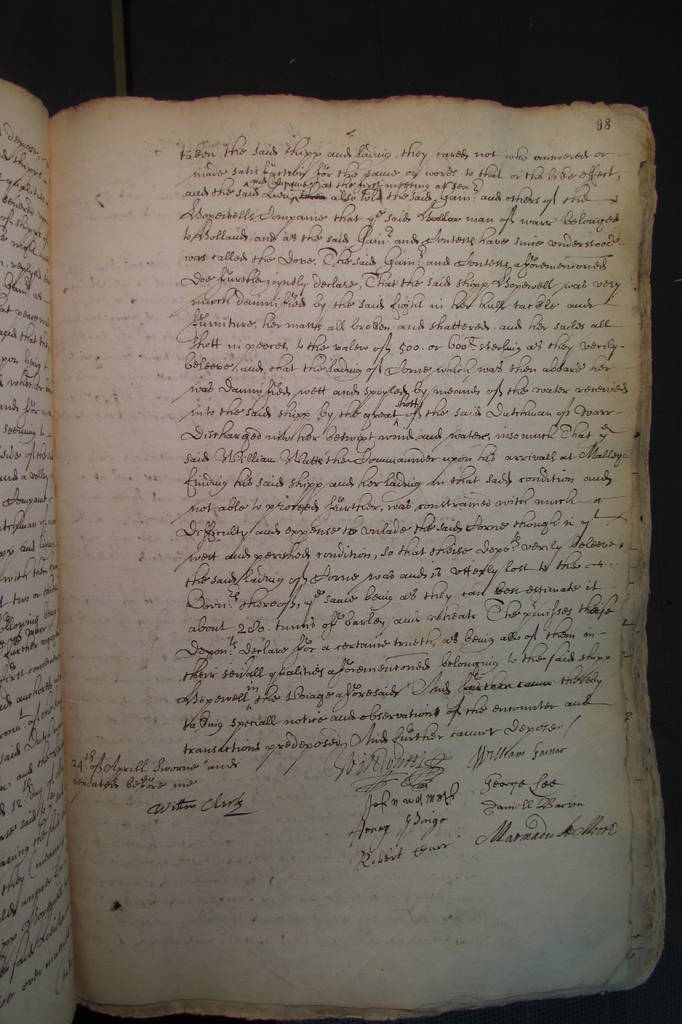 98
taken the said shipp and lading, they cared not who answered or
made satisfaction for the same or words to that or the like effect,
and the said also told the said Gain: and others of the
Hopewells Companie that ye said man of warr belonged
to Holland, and as the said Gain: and Jontess have since understood
was called the Dove. The said Gain: and Jontess aforementioned
doe further joyntly declare, That the said shipp Hopewell was very
much damnified by the said fight in her hull tackle and
furniture, her masts all broken and shattered and her sailes all
shott in peeces, to the valew of 500. or 600li sterling as they verily
beleeve, and that the lading of Corne which was then aboard her
was damnified, wett and spoyled by meanes of the water received
into the said shipp by the great shott of the said Dutchman of Warr
discharged into her betwixt wind and water, insomuch That ye
said William the Commaunder upon his arrivall at
finding his said shipp and her lading in that sadd condition and
not able to proceed further, was constrained with much
difficulty and expense to unlade the said Corne though in yt
wett and perished condition, so that theise deponts verily beleeve
the said lading of Corne was and is utterly lost to the
Owners thereof, ye same being as they can best estimate it
about 280 tunns of barley and wheate. The premisses these
deponts declare for a certaine trueth, as being all of them in
their severall qualities aforementioned belonging to the said shipp
Hopewell in the voiage aforesaid And thereby
tooking speciall notice and observations of the encounter and
transactions predeposed, And further cannot depose./
24th of Aprill sworne and
repeated before me
William Gainar
George Lee
Daniell Barron
Robert Carr
Marmaduke Moore